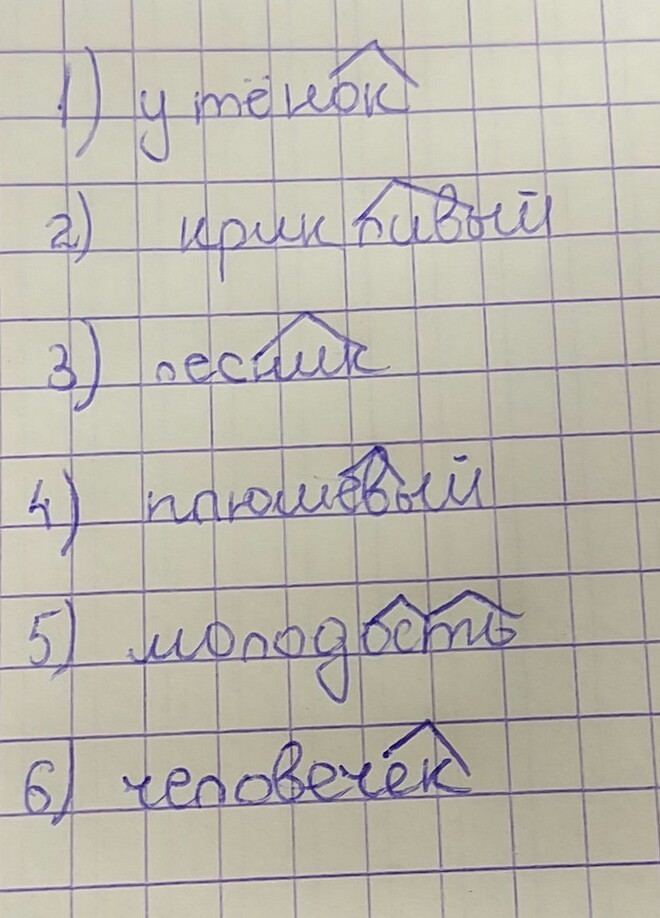 1) утёнок
2) крикливый
3) лесник
4) плюшевый
5) молодость
6) человечек